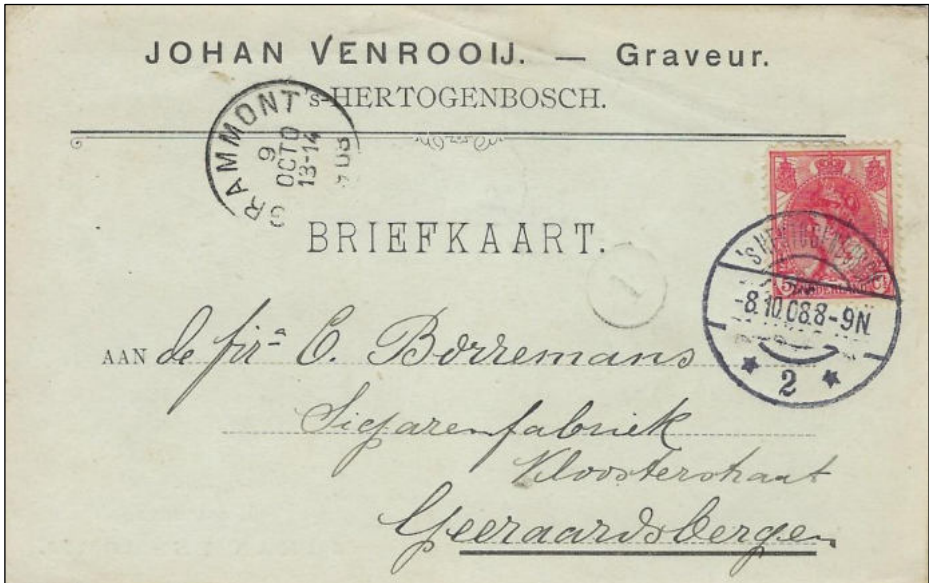 JOHAN VENROOIJ. — Graveur.
's-HERTOGENBOSCH.
GRAMMONT
9
OCTO
13-14
1908
BRIEFKAART.
1
'S HERTOGENBOSCH
5 NEDERLAND Ct
-8.10.08.8-9N.
2
AAN de fira C. Borremans
Sigarenfabriek
Kloosterstraat
Geeraardsbergen